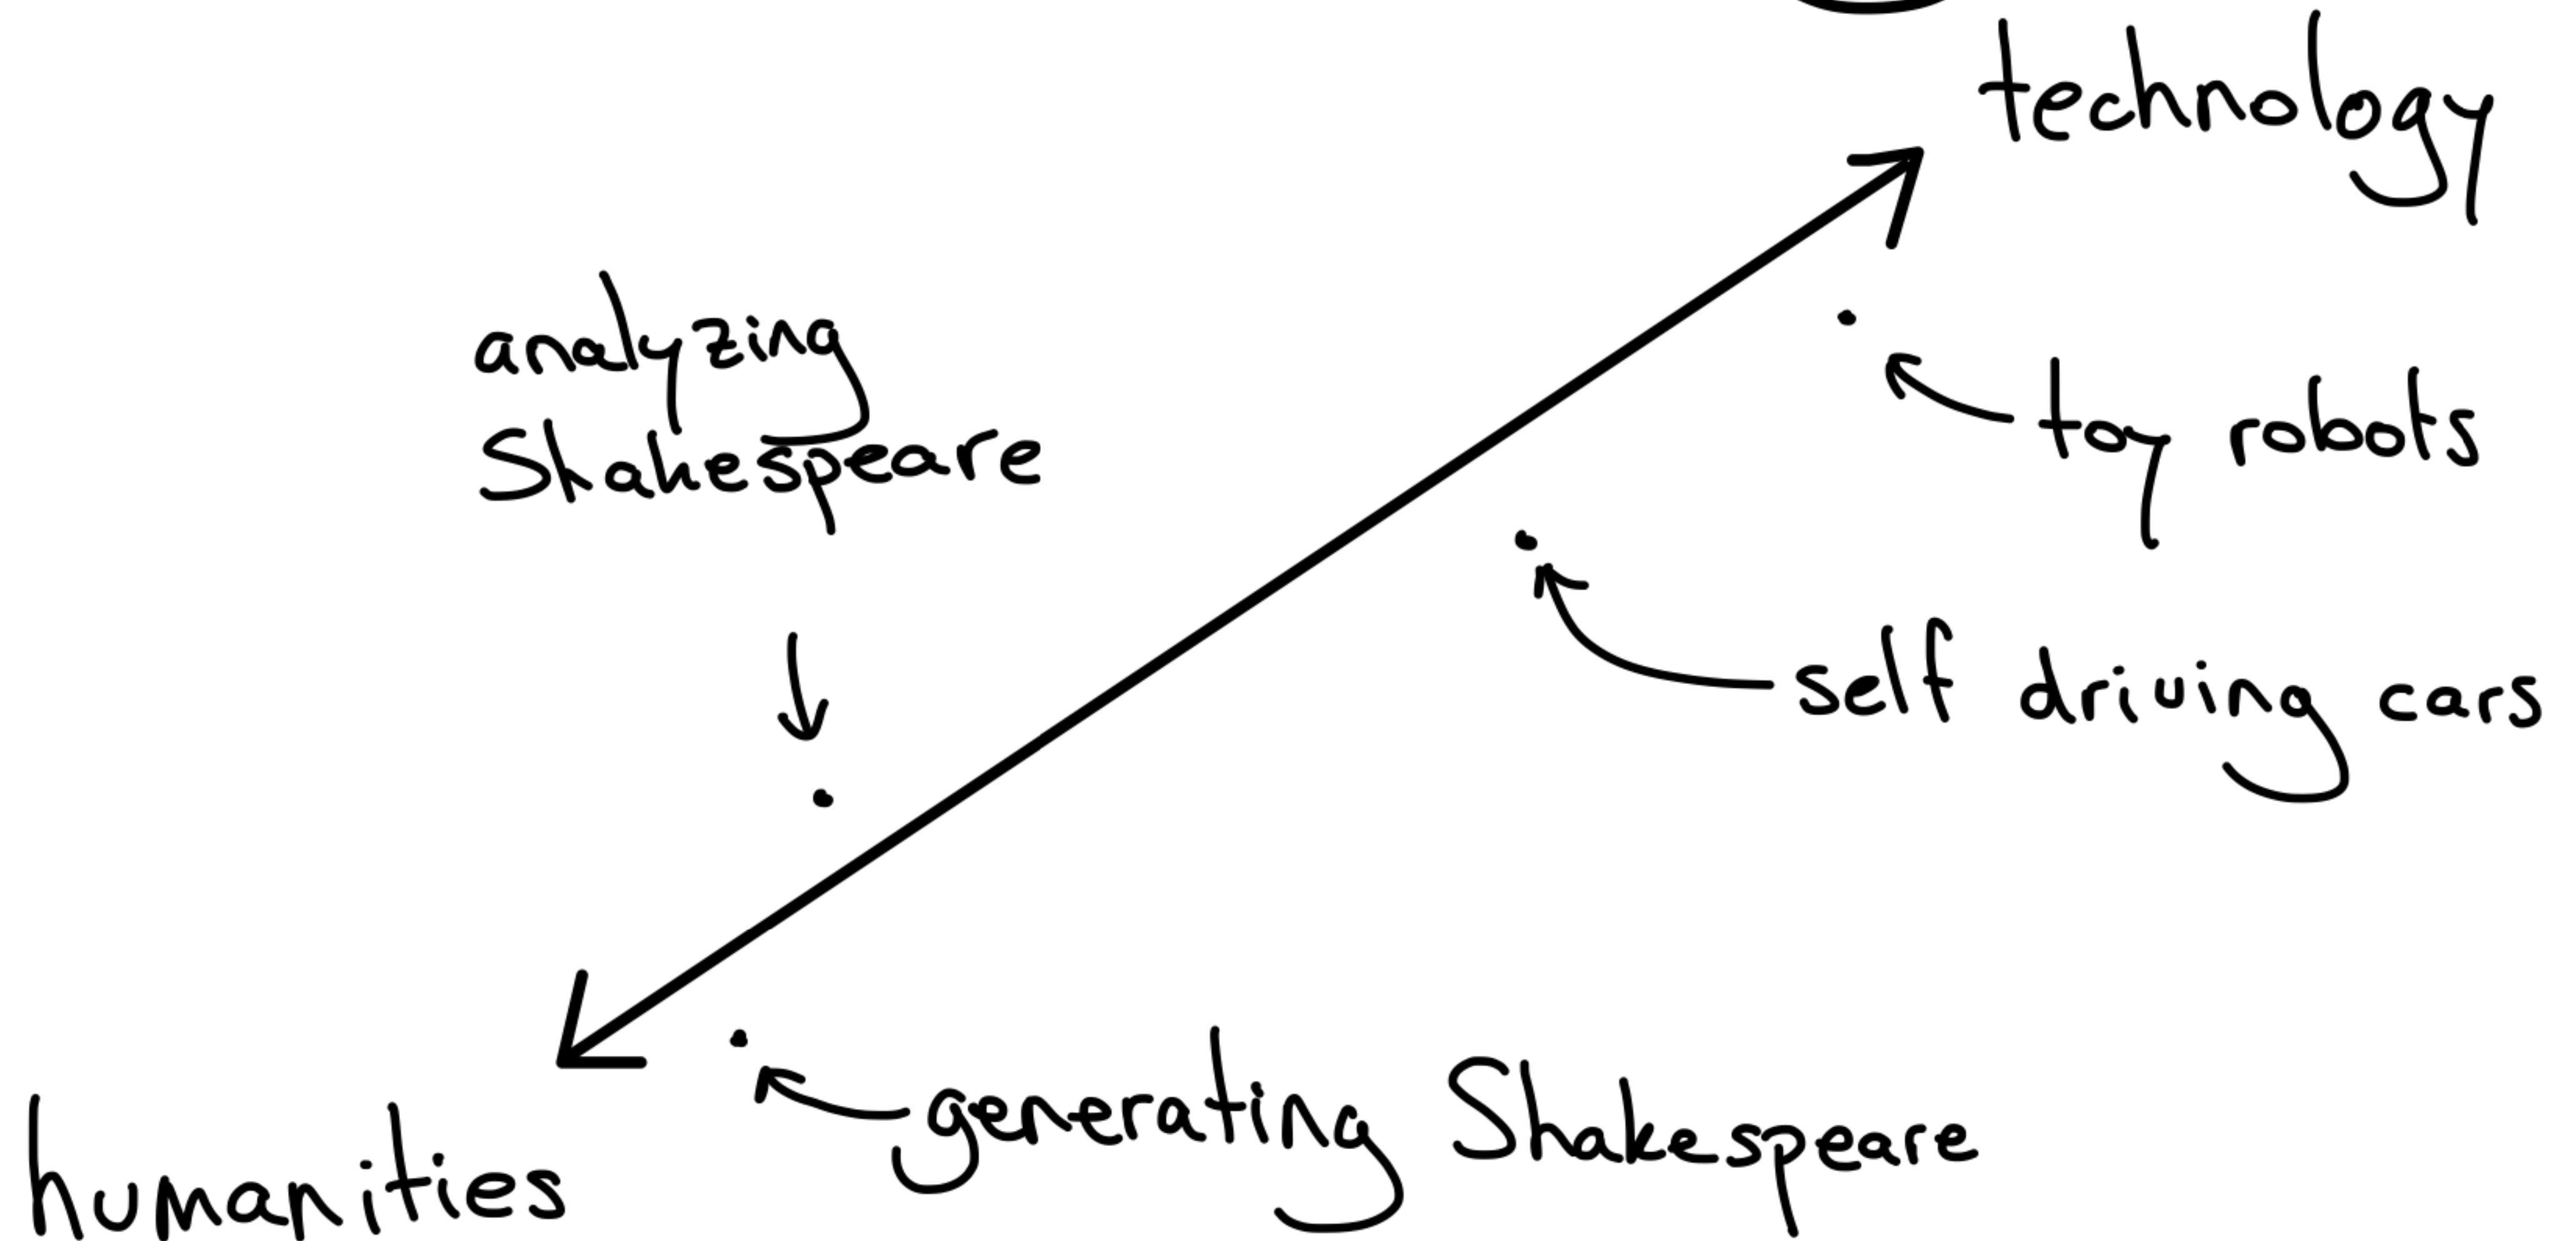 technology
analyzing
Shakespeare
toy robots
self driving cars
generating Shakespeare
humanities